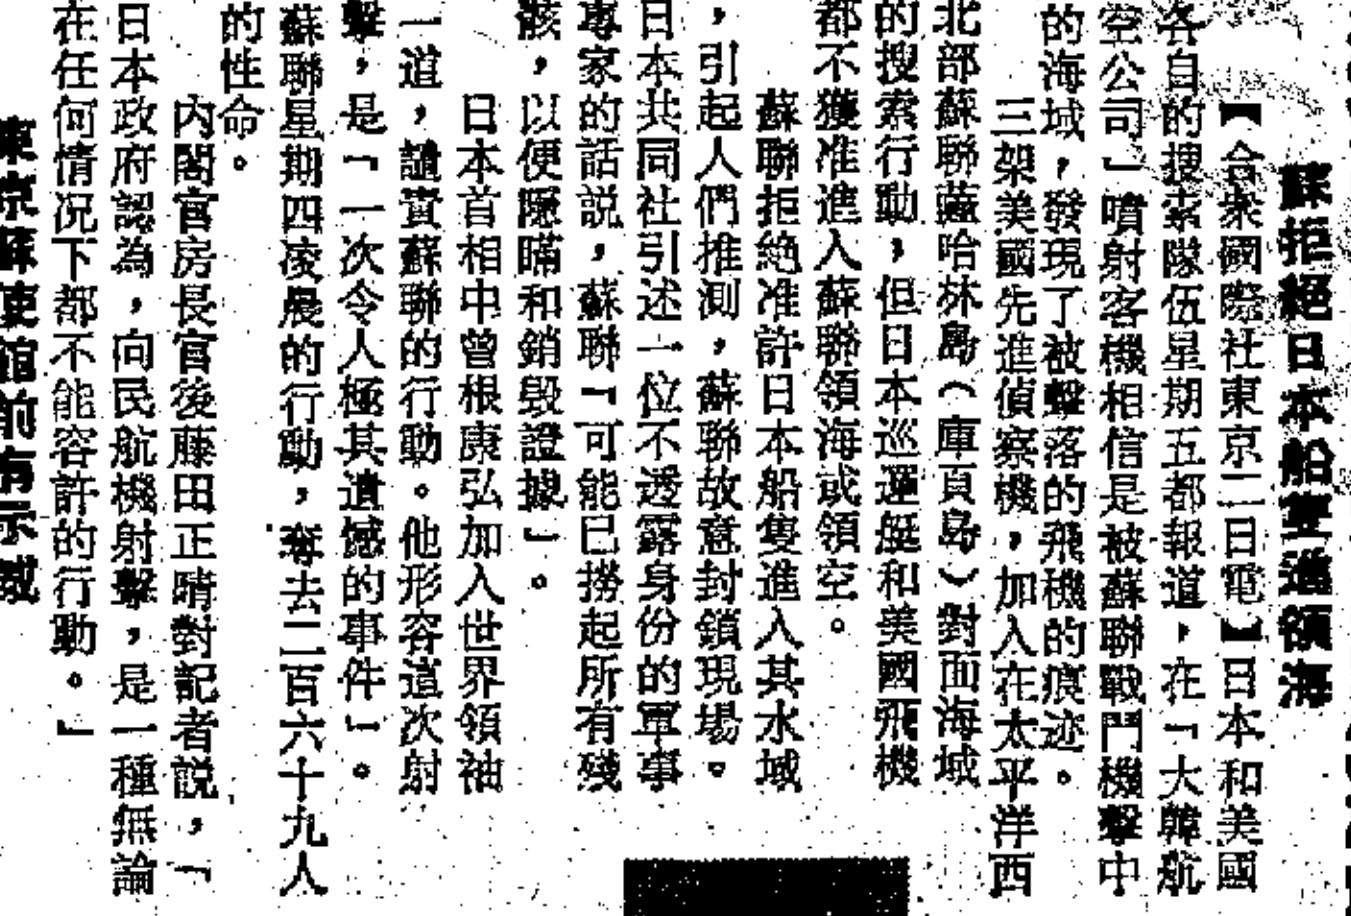 蘇拒絕日本船隻進領海
【合衆國際社東京二日電】日本和美國
各自的搜索隊伍星期五都報道，在「大韓航
空公司」噴射客機相信是被蘇聯戰鬥機擊中
的海域，發現了被擊落的飛機的痕迹。
三架美國先進偵察機，加入在太平洋西
北部蘇聯薩哈林島（庫頁島）對面海域
的搜索行動，但日本巡邏艇和美國飛機
都不獲准進入蘇聯領海或領空。
蘇聯拒絕准許日本船隻進入其水域
，引起人們推測，蘇聯故意封鎖現場。
日本共同社引述一位不透露身份的軍事
專家的話説，蘇聯「可能已撈起所有殘
骸，以便隱瞞和銷毀證據」。
日本首相中曾根康弘加入世界領袖
一道，譴責蘇聯的行動。他形容這次射
擊，是「一次令人極其遺憾的事件」。
蘇聯星期四凌晨的行動，奪去二百六十九人
的性命。
内閣官房長官後藤田正晴對記者説，「
日本政府認為，向民航機射擊，是一種無論
在任何情况下都不能容許的行動。」
東京蘇使館前有示威